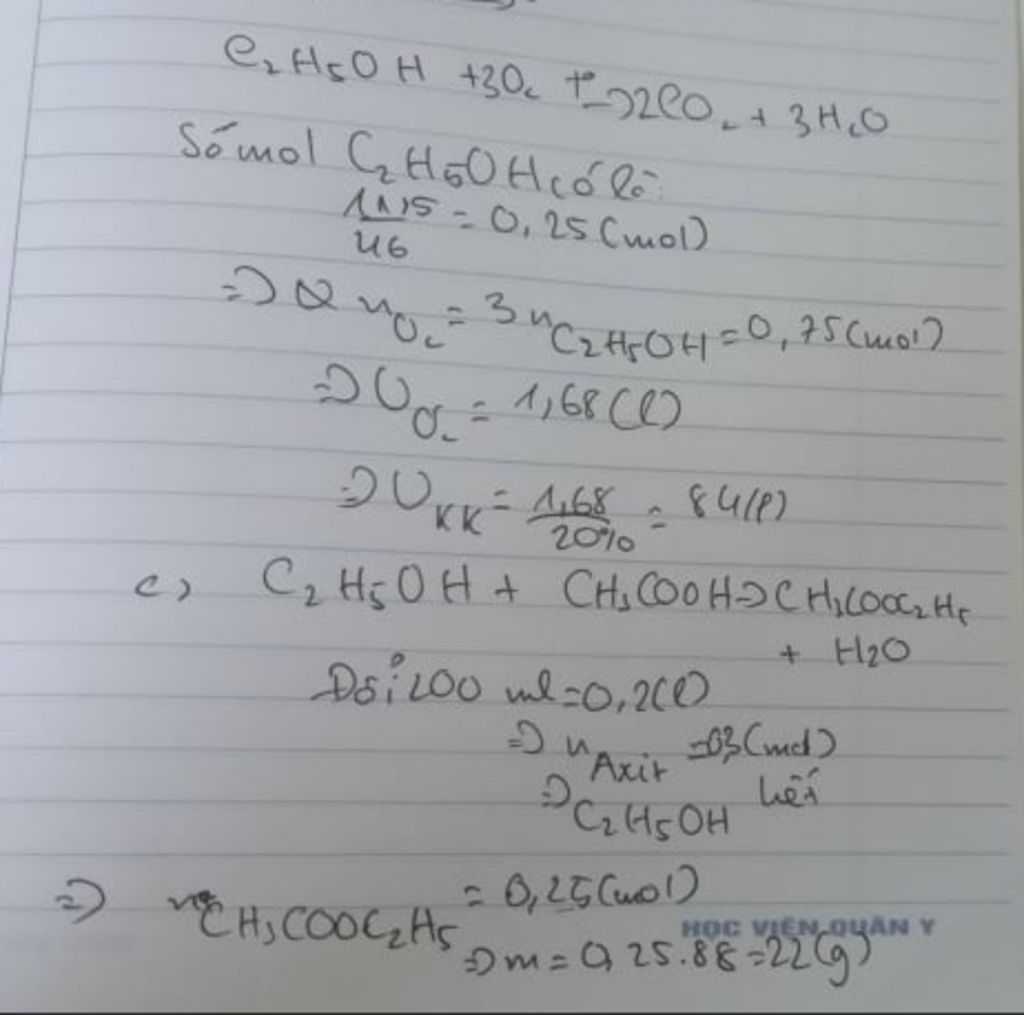 C₂H₅OH + 3O₂ t°→ 2CO₂ + 3H₂O
Số mol C₂H₅OH có là:
11,5/46 = 0,25 (mol)
=> n O₂ = 3 n C₂H₅OH = 0,75 (mol)
=> V O₂ = 1,68 (l)
=> V KK = 1,68/20% = 84 (l)
c) C₂H₅OH + CH₃COOH → CH₃COOC₂H₅
+ H2O
Đổi 200 ml = 0,2 (l)
=> n Axit = 0,3 (mol)
=> C₂H₅OH hết
=> n CH₃COOC₂H₅ = 0,25 (mol)
HỌC VIỆN QUÂN Y
=> m = 0,25.88 = 22 (g)